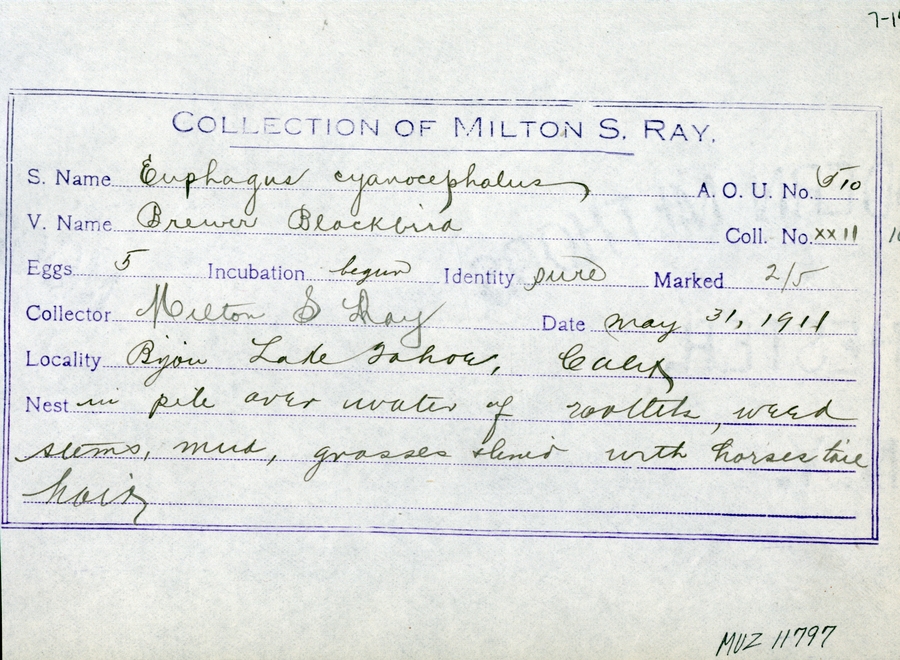 7-1
COLLECTION OF MILTON S. RAY.
S. Name Euphagus cyanocephalus A. O. U. No. 510
V. Name Brewer Blackbird Coll. No. XX11
Eggs 5 Incubation begun Identity sure Marked 2/5
Collector Milton S Ray Date May 31, 1911
Locality Bijou Lake Tahoe, Calif
Nest in pile over water of rootlets, weed
stems, mud, grasses lined with horses tail
hair
MVZ 11797